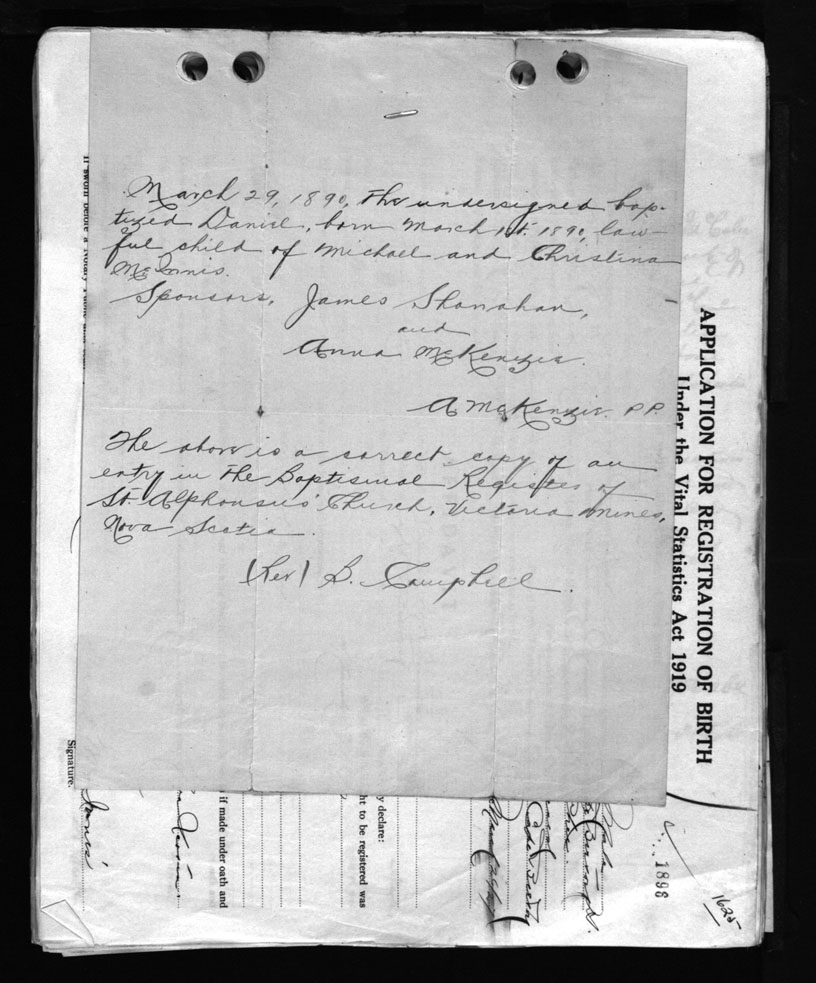 March 29, 1890, The undersigned bap-
tized Daniel, born March 1st. 1890, law-
ful child of Michael and Christina
McInnis.
Sponsors, James Shanahan,
and
Anna McKenzie.
A McKenzie. P.P.
The above is a correct copy of an
entry in the Baptismal Register of
St. Alphonsus' Church, Victoria Mines,
Nova Scotia.
(Rev) B. Campbell.
APPLICATION FOR REGISTRATION OF BIRTH
Under the Vital Statistics Act 1919
If sworn before a Notary Public
Signature.
if made under oath and
ht to be registered was
y declare:
1625